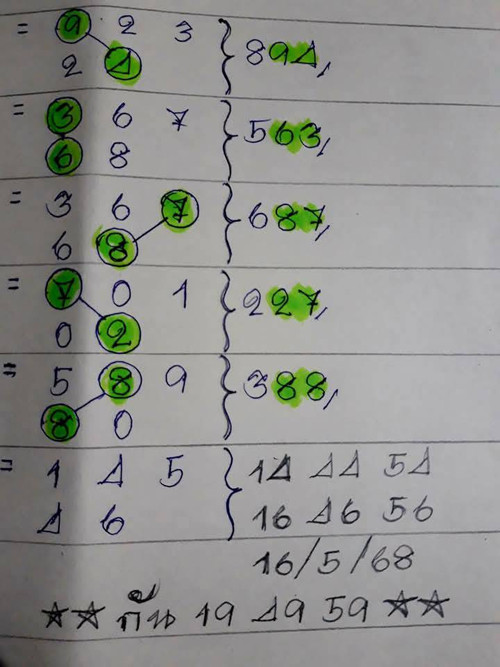 = 9 2 3
2 4 } 894,
= 3 6 7
6 8 } 563,
= 3 6 7
6 8 } 687,
= 7 0 1
0 2 } 227,
= 5 8 9
8 0 } 388,
= 1 4 5 } 14 44 54
4 6 16 46 56
16/5/68
☆☆ กั้น 19 49 59 ☆☆